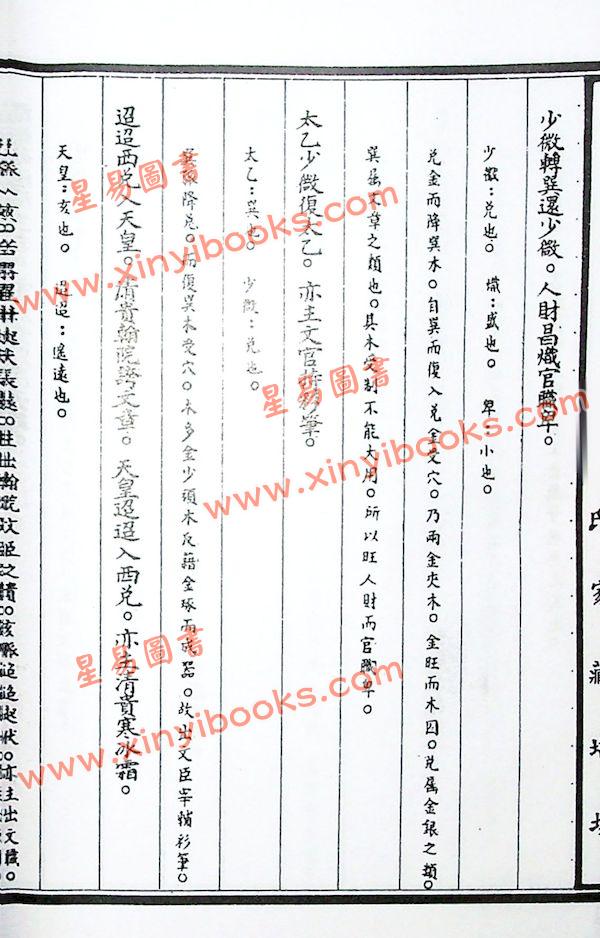 氏家藏
少微轉巽還少微。人財昌熾官職卑。
少微:兌也。 熾:盛也。 卑:小也。
兌金而降巽木。自巽而復入兌金受穴。乃兩金夾木。金旺而木囚。兌屬金銀之類。
巽屬文章之類也。其木受制不能大用。所以旺人財而官職卑。
太乙少微復太乙。亦主文官筆。
太乙:巽也。 少微:兌也。
降兌。而復巽木受穴。木多金少頑木反藉金琢而成器。故出文臣宰筆。
迢迢西兌入天皇。清貴翰院誇文章。 天皇迢迢入西兌。亦主清貴寒冰霜。
天皇:亥也。 迢迢:遙遠也。
亦主出文職。
星易圖書
www.xinyibooks.com
星易圖書
www.xinyibooks.com
星易圖書
www.xinyibooks.com